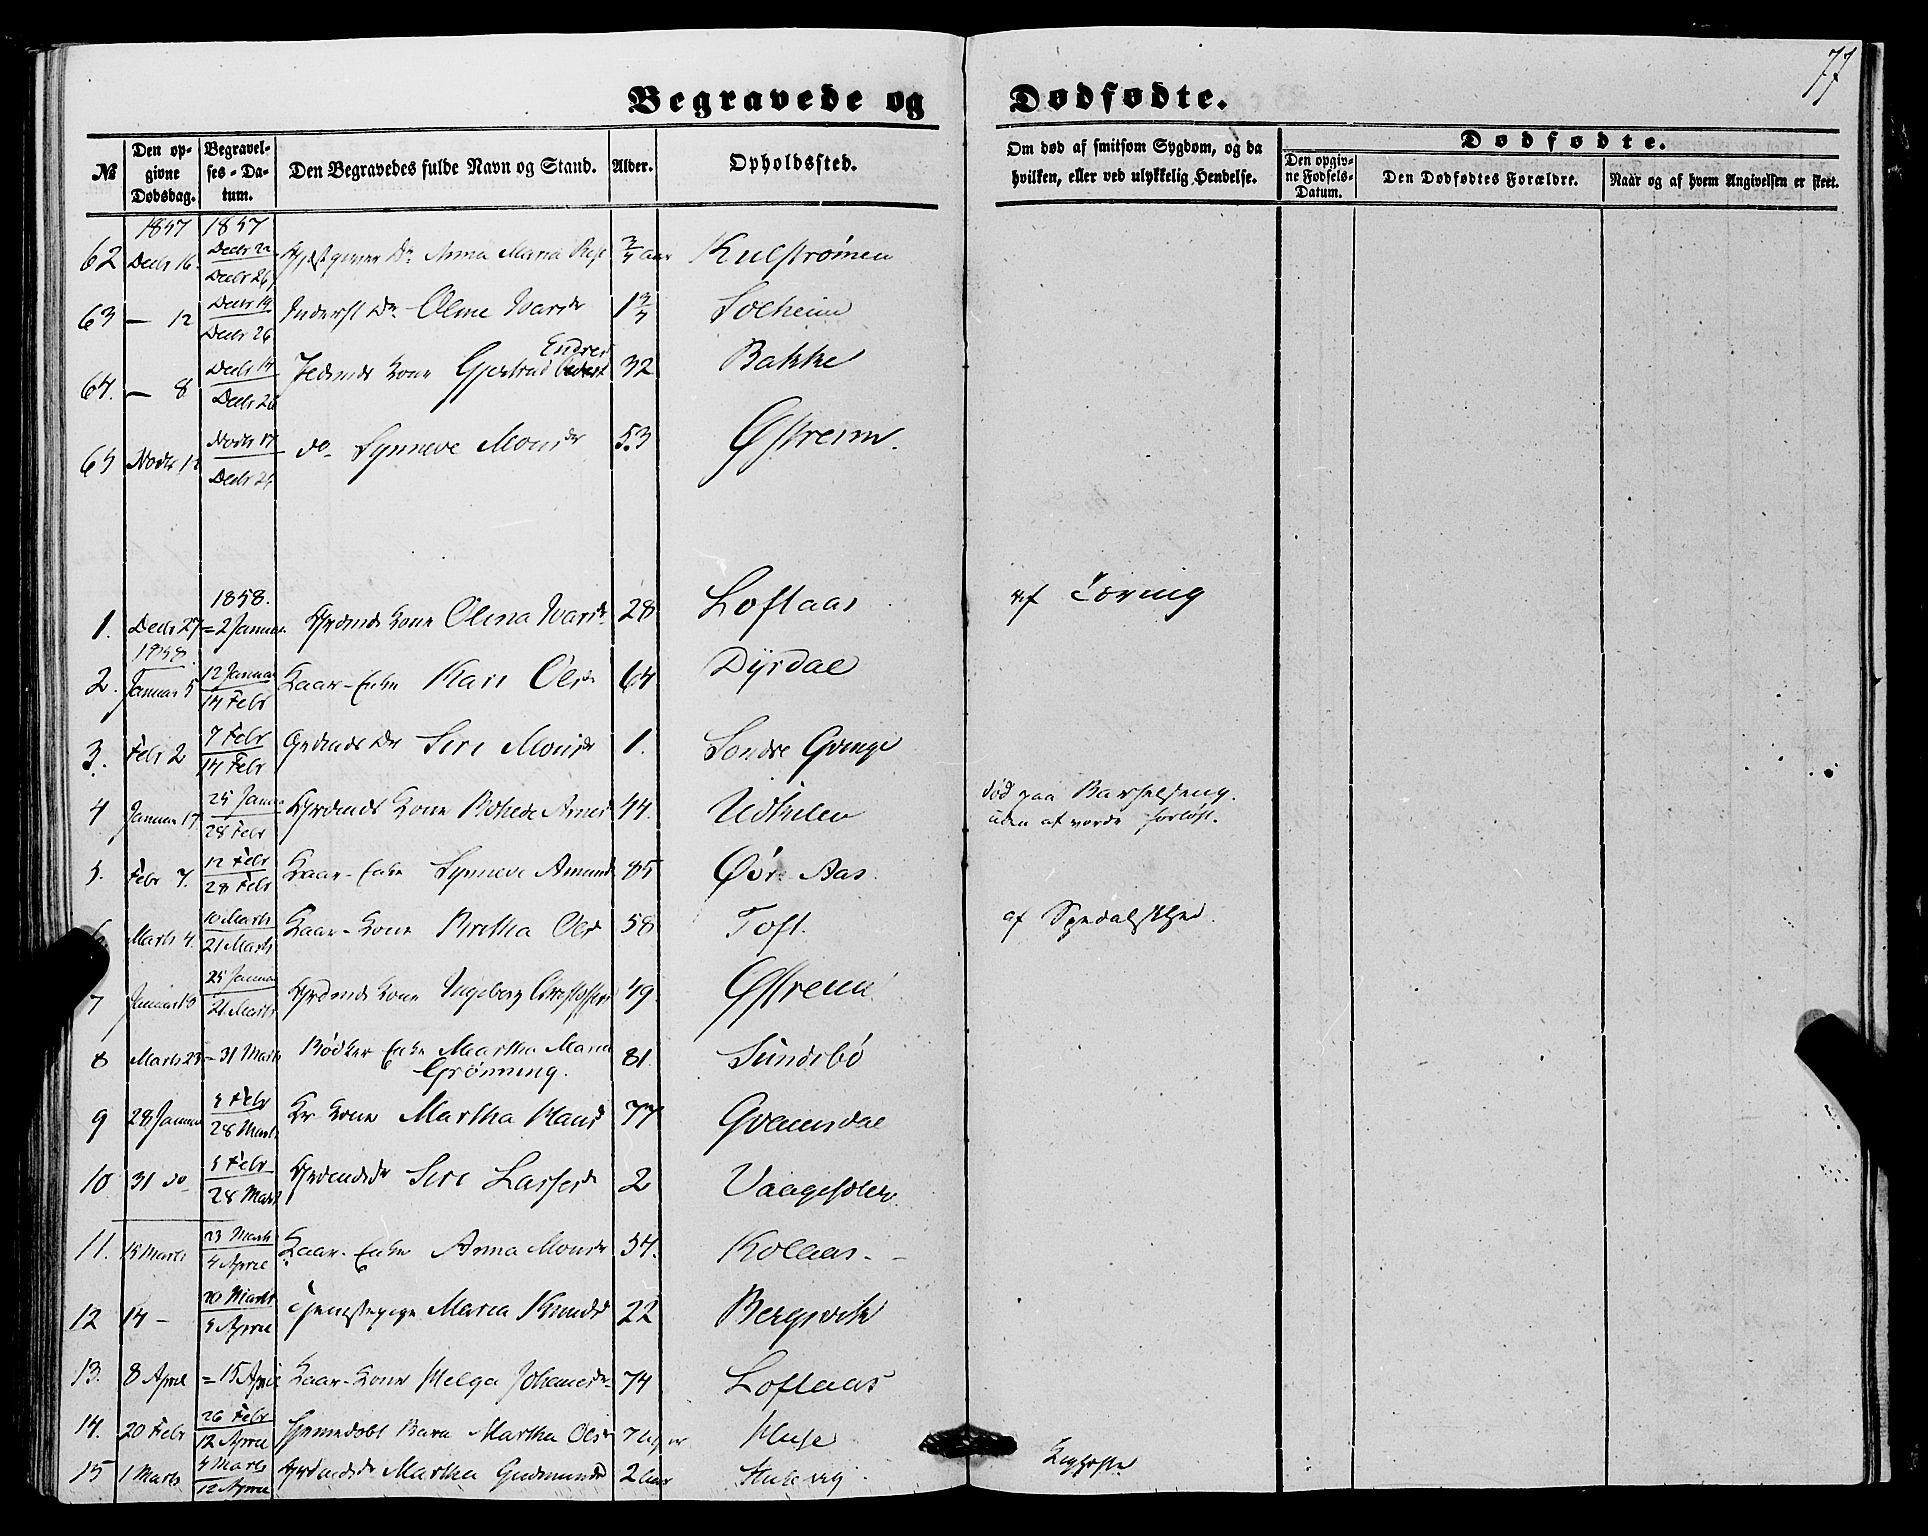 77
Begravede og Dødfødte.
№ Den opgivne Dødsdag. Begravelses-Datum. Den Begravedes fulde Navn og Stand. Alder. Opholdssted. Om død af smitsom Sygdom, og da hvilken, eller ved ulykkelig Hendelse. Dødfødte. Den opgivne Fødsels-Datum. Den Dødfødtes Forældre. Naar og af hvem Angivelsen er skeet.
1857 1857
62 Decbr 16 Decbr 22 Decbr 26 Dr Anna Maria 3/4 aar Kulstrømen
63 — 12 Decbr 19 Decbr 26 Inderst Dr Oline Ivarsdr 1 3/4 Solheim
64. — 8 Decbr 14 Decbr 26 Kone Gjertrud Endresd 32 Bakke
65 Novbr 12 Novbr 17 Decbr 26 do Synneve Monsdr 53 Østreim.
1858.
1. Decbr 27 = 2 Januar Grdmds Kone Olina Ivarsdr 28 Loftaas af Tæring
1858.
2. Januar 5 12 Januar 14 Febr Kaar-Enke Kari Olsdr 64 Dyrdal
3. Febr 2 7 Febr 14 Febr Grdmds Dr Siri Monsdr 1. Søndre Qvinge
4 Januar 17 25 Januar 28 Febr Grdmds Kone Arnesd 44. Udkilen død paa Barselseng. uden at vorde forløst.
5. Febr 7. 12 Febr 28 Febr Kaar-Enke Synneve Amunds 85 Øvre Aas.
6 Marts 4. 10 Marts 21 Marts Kaar-Kone Brithe Olsd 58 Toft. af Spedalskhed.
7 Januar 25 Januar 21 Marts Grdmds Kone Ingeborg Christoffersd 49 Østreim
8 Marts 23 - 31 Marts Bødker Enke Martha Maria Grønning. 81. Sundsbø
9 28 Januar 5 Febr 28 Marts Kr Kone Martha Hansd 77 Qvamsdal
10 31 do 5 Febr 28 Marts Grdmdsdr Siri Lassesdr 2
11. 15 Marts 23 Marts 4 April Kaar-Enke Anna Monsdr 54. Kolaas.
12 14 - 20 Marts 5 April Tjenestepige Maria Knudsd 22 Bergsvik
13. 8 April = 15 April Kaar-Kone Helga Johannesdr 74 Loftaas
14. 20 Febr 26 Febr 12 April Hjemmedøbt Barn Martha Olsdr 7 Uger Huse
15 1 Marts 4 Marts 12 April Grdmdsdr Martha Gudmundsd 2 Aar Kighoste